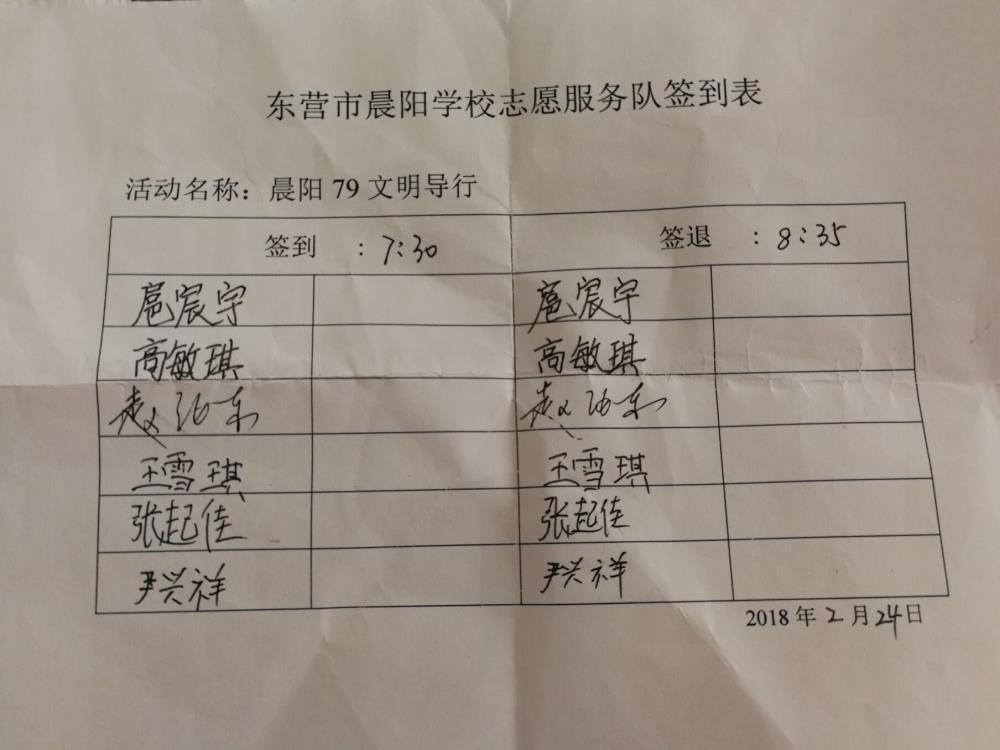 东营市晨阳学校志愿服务队签到表
活动名称：晨阳 79 文明导行
签到 ：7:30 签退 ：8:35
扈宸宇 扈宸宇
高敏琪 高敏琪
赵 赵
王雪琪 王雪琪
张起佳 张起佳
尹兴祥 尹兴祥
2018 年 2 月 24 日